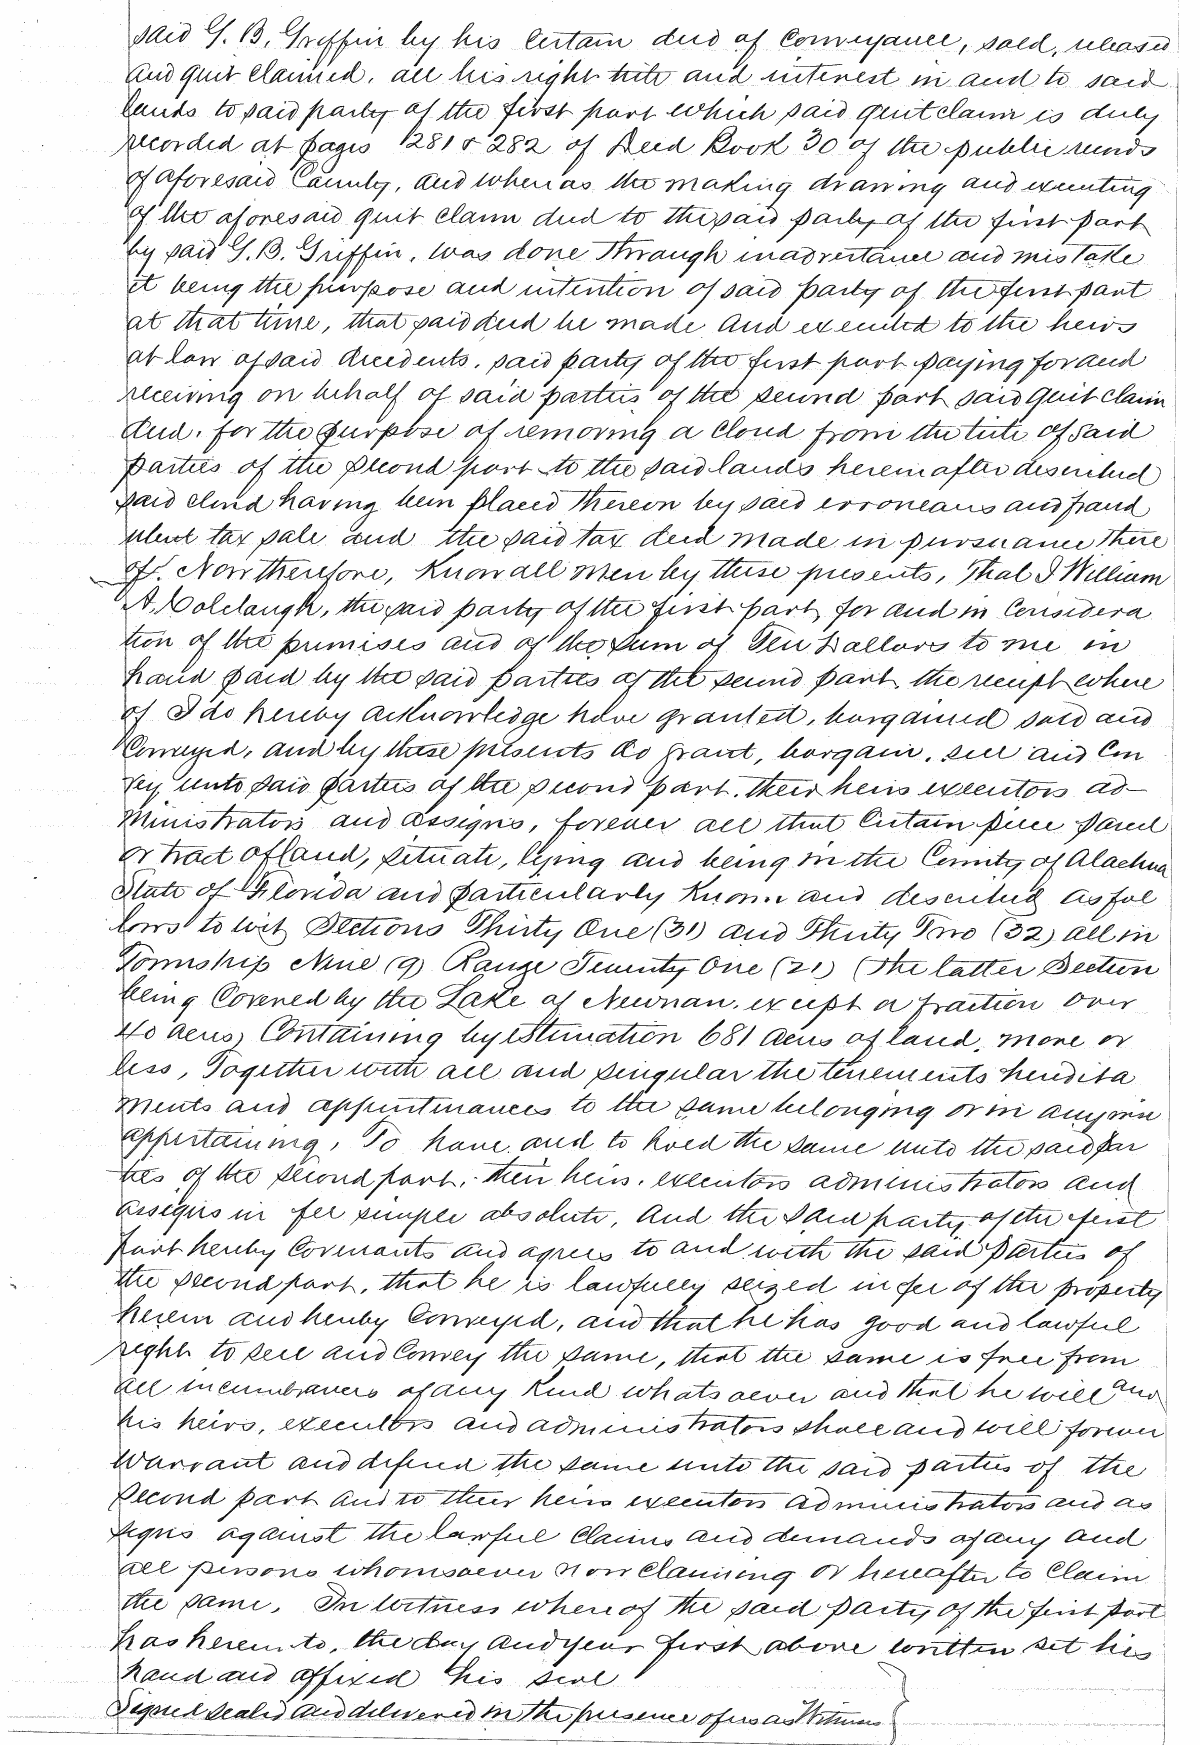 said G. B. Griffin by his Certain deed of Conveyance, sold, released
and quit claimed, all his right title and interest in and to said
lands to said party of the first part which said quit claim is duly
recorded at pages 281 & 282 of Deed Book 30 of the public records
of aforesaid County, and whereas the making drawing and executing
of the aforesaid quit claim deed to the said party of the first part
by said G. B. Griffin, was done through inadvertance and mistake
it being the purpose and intention of said party of the first part
at that time, that said deed be made and executed to the heirs
at law of said decedents, said party of the first part paying for and
receiving on behalf of said parties of the second part said quit claim
deed, for the purpose of removing a cloud from the title of said
parties of the second part to the said lands hereinafter described
said cloud having been placed thereon by said erroneous and fraud
ulent tax sale and the said tax deed made in pursuance there
of. Now therefore, Know all men by these presents, That I William
A. Colclough, the said party of the first part, for and in Considera
tion of the premises and of the sum of Ten Dollars to me in
hand paid by the said parties of the second part, the receipt where
of I do hereby acknowledge have granted, bargained sold and
Conveyed, and by these presents do grant, bargain, sell and Con
vey unto said parties of the second part, their heirs executors ad-
ministrators and assigns, forever all that Certain piece parcel
or tract of land, situate, lying and being in the County of Alachua
State of Florida and particularly Known and described as fol
lows to wit Sections Thirty One (31) and Thirty Two (32) all in
Township Nine (9) Range Twenty One (21) (the latter Section
being Covered by the Lake of Newnan, except a fraction over
40 acres) Containing by estimation 681 acres of land, more or
less, Together with all and singular the tenements heredita
ments and appurtenances to the same belonging or in anywise
appertaining, To have and to hold the same unto the said par
ties of the second part, their heirs, executors administrators and
assigns in fee simple absolute, And the said party of the first
part hereby Covenants and agrees to and with the said parties of
the second part, that he is lawfully seized in fee of the property
herein and hereby Conveyed, and that he has good and lawful
right to sell and Convey the same, that the same is free from
all incumbrances of any Kind whatsoever and that he will and
his heirs, executors and administrators shall and will forever
warrant and defend the same unto the said parties of the
second part and to their heirs executors administrators and as
signs against the lawful Claims and demands of any and
all persons whomsoever now Claiming or hereafter to Claim
the same. In Witness whereof the said party of the first part
has hereunto, the day and year first above written set his
hand and affixed his seal
Signed sealed and delivered in the presence of us as Witness